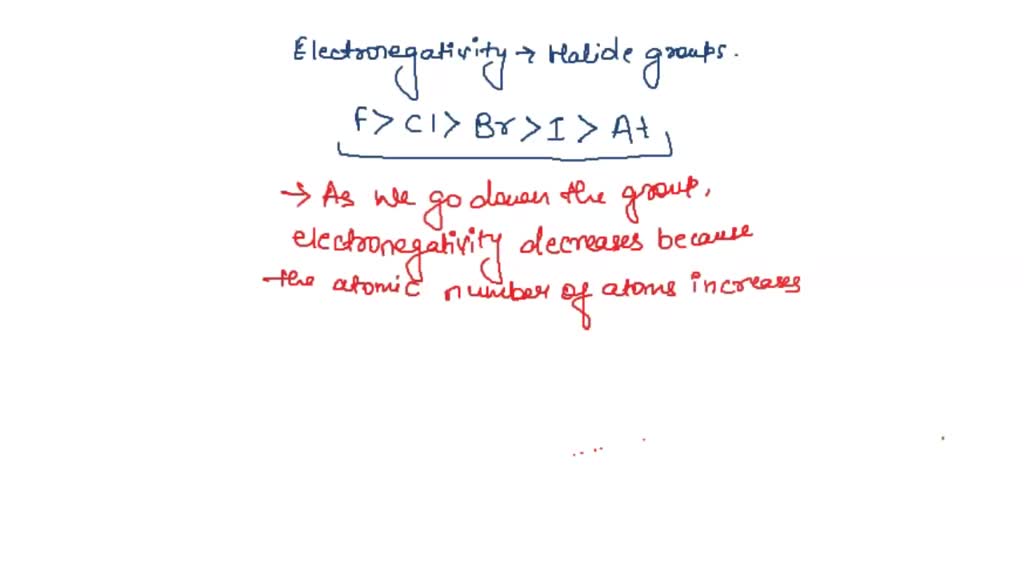 Electronegativity → Halide groups.
F > Cl > Br > I > At
→ As we go down the group,
electronegativity decreases because
the atomic number of atoms increases